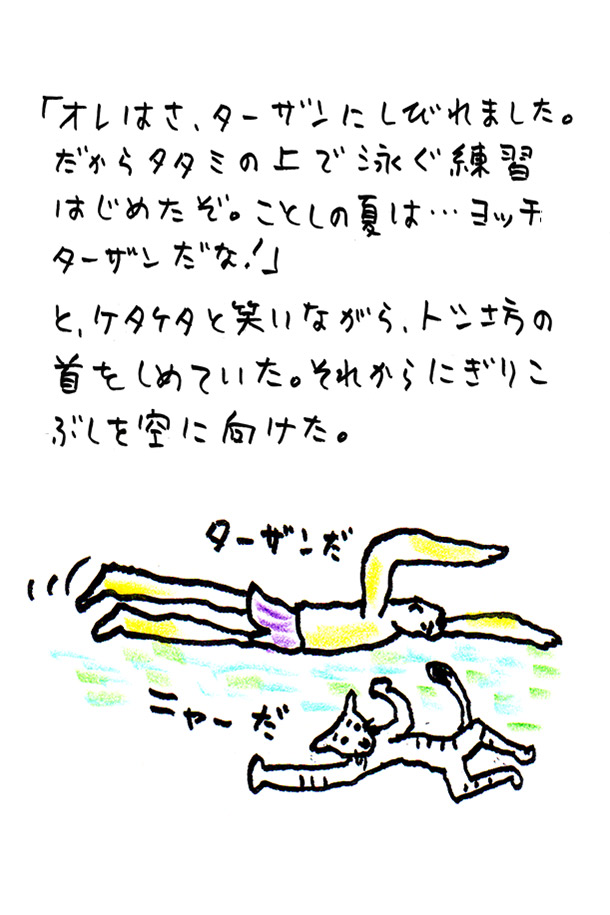 「オレはさ、ターザンにしびれました。
だからタタミの上で泳ぐ練習
はじめたぞ。ことしの夏は…ヨッチ
ターザンだな!」
と、ケタケタと笑いながら、トンさ方の
首をしめていた。それからにぎりこ
ぶしを空に向けた。
ターザンだ
ニャーだ